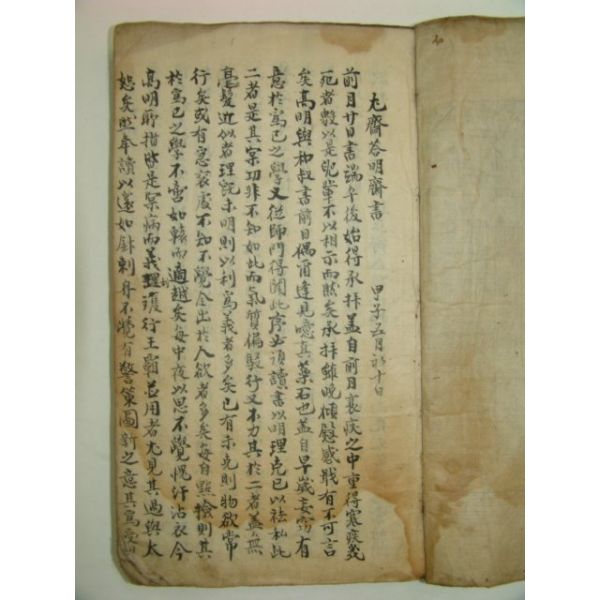 尤齋答明齋書 甲子五月初十日
前月廿日書端午後始得承拜盖自前月衰疾之中重得寒疾幾
死者數以是兒輩不以相示而然矣承拜雖晩傾慰感戢有不可言
矣高明與和叔書前日偶甭逢見噫真藥石也盖自早歲妄窃有
意於爲己之學又從師門得聞此序必須讀書以明理克己以祛私此
二者是其案功非不知如此而氣質偏駁行又不力其於二者盖無
毫髮近似者理旣未明則以利爲義者多矣己有未克則物欲常
行矣或有惡裏處不知不覺全出於人欲者多矣每自點撿則其
於爲己之學不啻如轅而適越矣每中夜以思不覺愧汗沾衣今
高明所指皆是案病而義理䨱行王覇並用者尤見其過與太
恕矣然奉讀以還如針刺身不覺有警策圖新之意其爲受